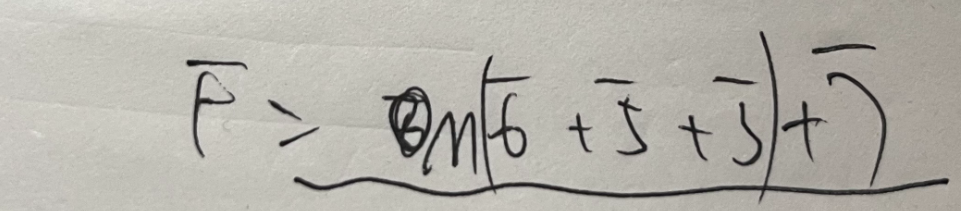 F̅ = m(6̅ + 5̅ + 3̅) + 7̅